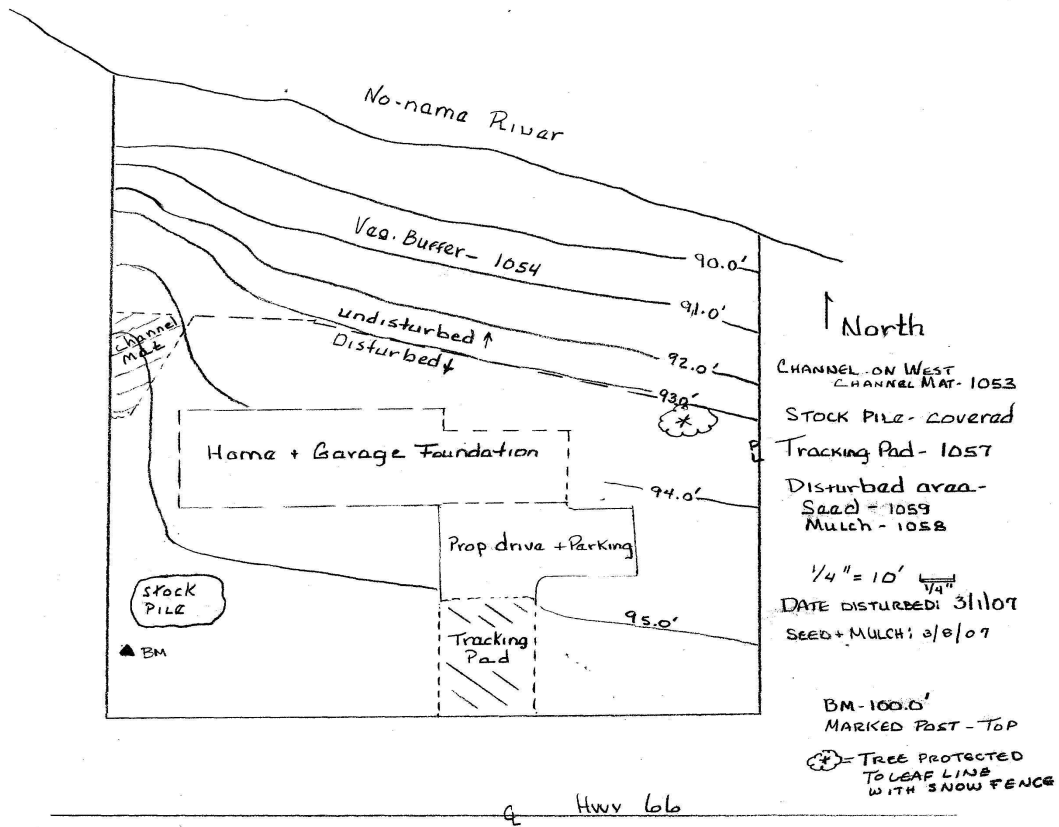 No-name River
Veg. Buffer- 1054
90.0'
91.0'
undisturbed ↑
Disturbed ↓
92.0'
93.0'
Channel
mat
Home + Garage Foundation
94.0'
Prop drive + Parking
STOCK
PILE
95.0'
Tracking
Pad
▲ BM
Hwy 66
North
CHANNEL ON WEST
CHANNEL MAT- 1053
STOCK PILE- covered
PL
Tracking Pad- 1057
Disturbed area-
Seed - 1059
Mulch - 1058
1/4" = 10'
1/4"
DATE DISTURBED: 3/1/07
SEED + MULCH: 3/8/07
BM-100.0'
MARKED POST - TOP
= TREE PROTECTED
TO LEAF LINE
WITH SNOW FENCE
CL